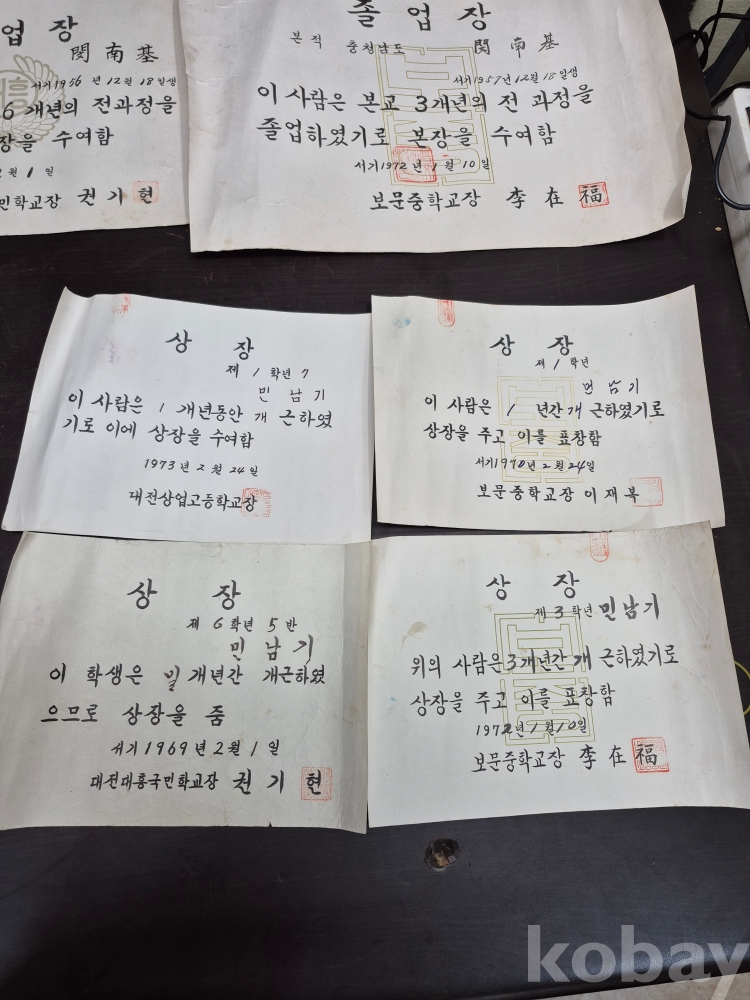 업 장
閔南基
서기1956 년 12월 18일생
6 개년의 전과정을
장을 수여함
월 1 일
민학교장 권 기 현
졸 업 장
본 적 충청남도 閔 南 基
서기1957년 12월 18일생
이 사람은 본교 3개년의 전 과정을
졸업하였기로 본장을 수여함
서기1972 년 1 월 10 일
보문중학교장 李 在 福
상 장
제 1 학년 7
민 남 기
이 사람은 1 개년동안 개 근하였
기로 이에 상장을 수여함
1973 년 2 월 24 일
대전상업고등학교장
상 장
제 1 학년
민 남 기
이 사람은 1 년간 개 근하였기로
상장을 주고 이를 표창함
서기1970년 2 월 24일
보문중학교장 이 재 복
상 장
제 6 학년 5 반
민 남 기
이 학생은 개년간 개근하였
으므로 상장을 줌
서기 1969 년 2 월 1 일
대전대흥국민학교장 권 기 현
상 장
제 3 학년 민남기
위의 사람은 3 개년간 개 근하였기로
상장을 주고 이를 표창함
1972년 1 월 10일
보문중학교장 李 在 福
kobay